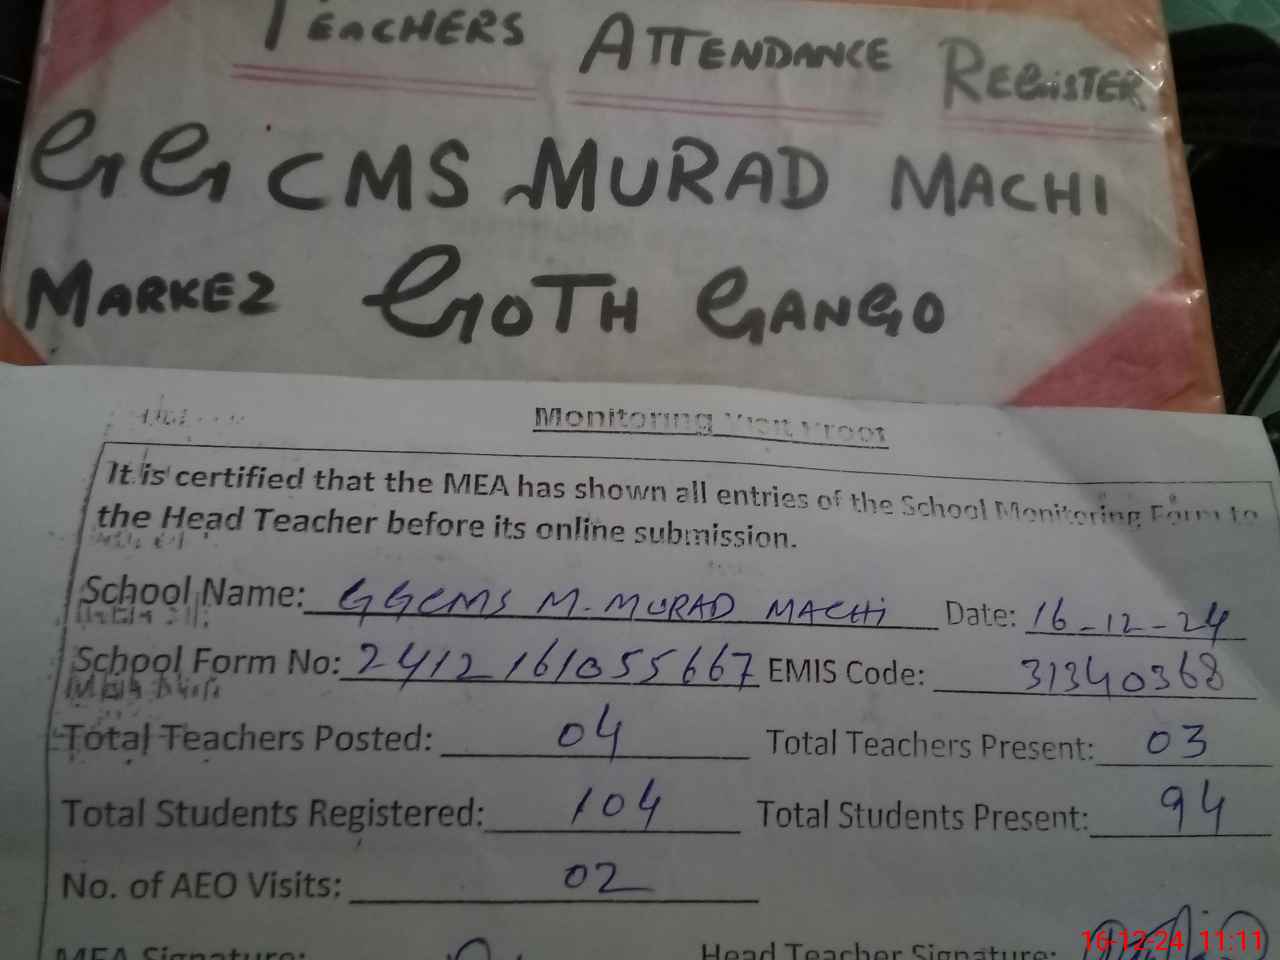 TEACHERS ATTENDANCE REGISTER
GG CMS MURAD MACHI
MARKEZ GOTH GANGO
Monitoring Visit Proof
It is certified that the MEA has shown all entries of the School Monitoring Form to
the Head Teacher before its online submission.
School Name: GGCMS M. MURAD MACHI Date: 16-12-24
School Form No: 2412161055667 EMIS Code: 31340368
Total Teachers Posted: 04 Total Teachers Present: 03
Total Students Registered: 104 Total Students Present: 94
No. of AEO Visits: 02
MEA Signature: Head Teacher Signature:
16-12-24 11:11